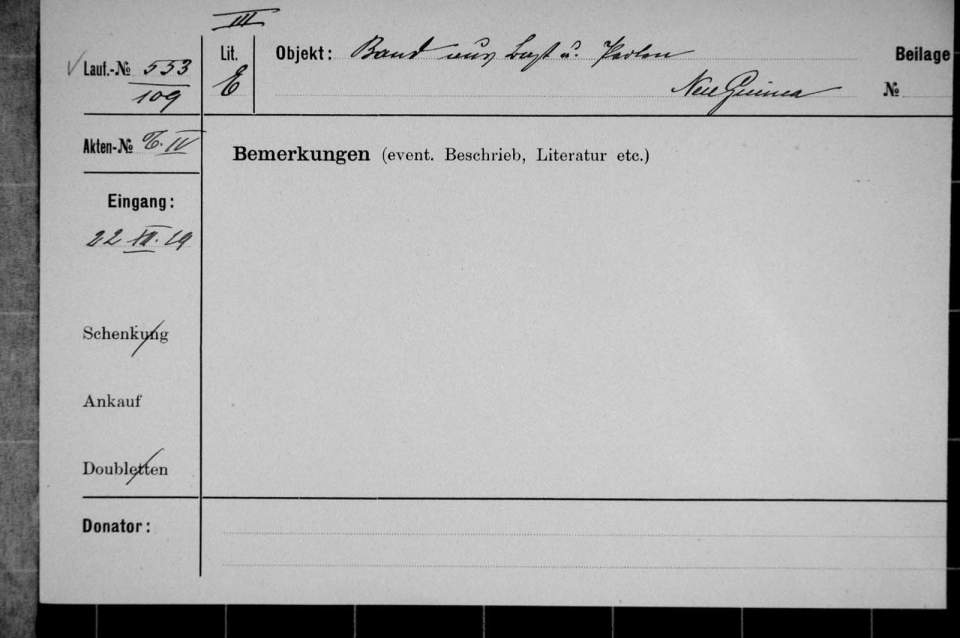 III
Lauf.-№ 553
109
Lit.
E
Objekt: Band aus Bast u. Perlen
Neu Guinea
Beilage
№
Akten-№ IV
Bemerkungen (event. Beschrieb, Literatur etc.)
Eingang:
22 XII. 19
Schenkung
Ankauf
Doubletten
Donator: